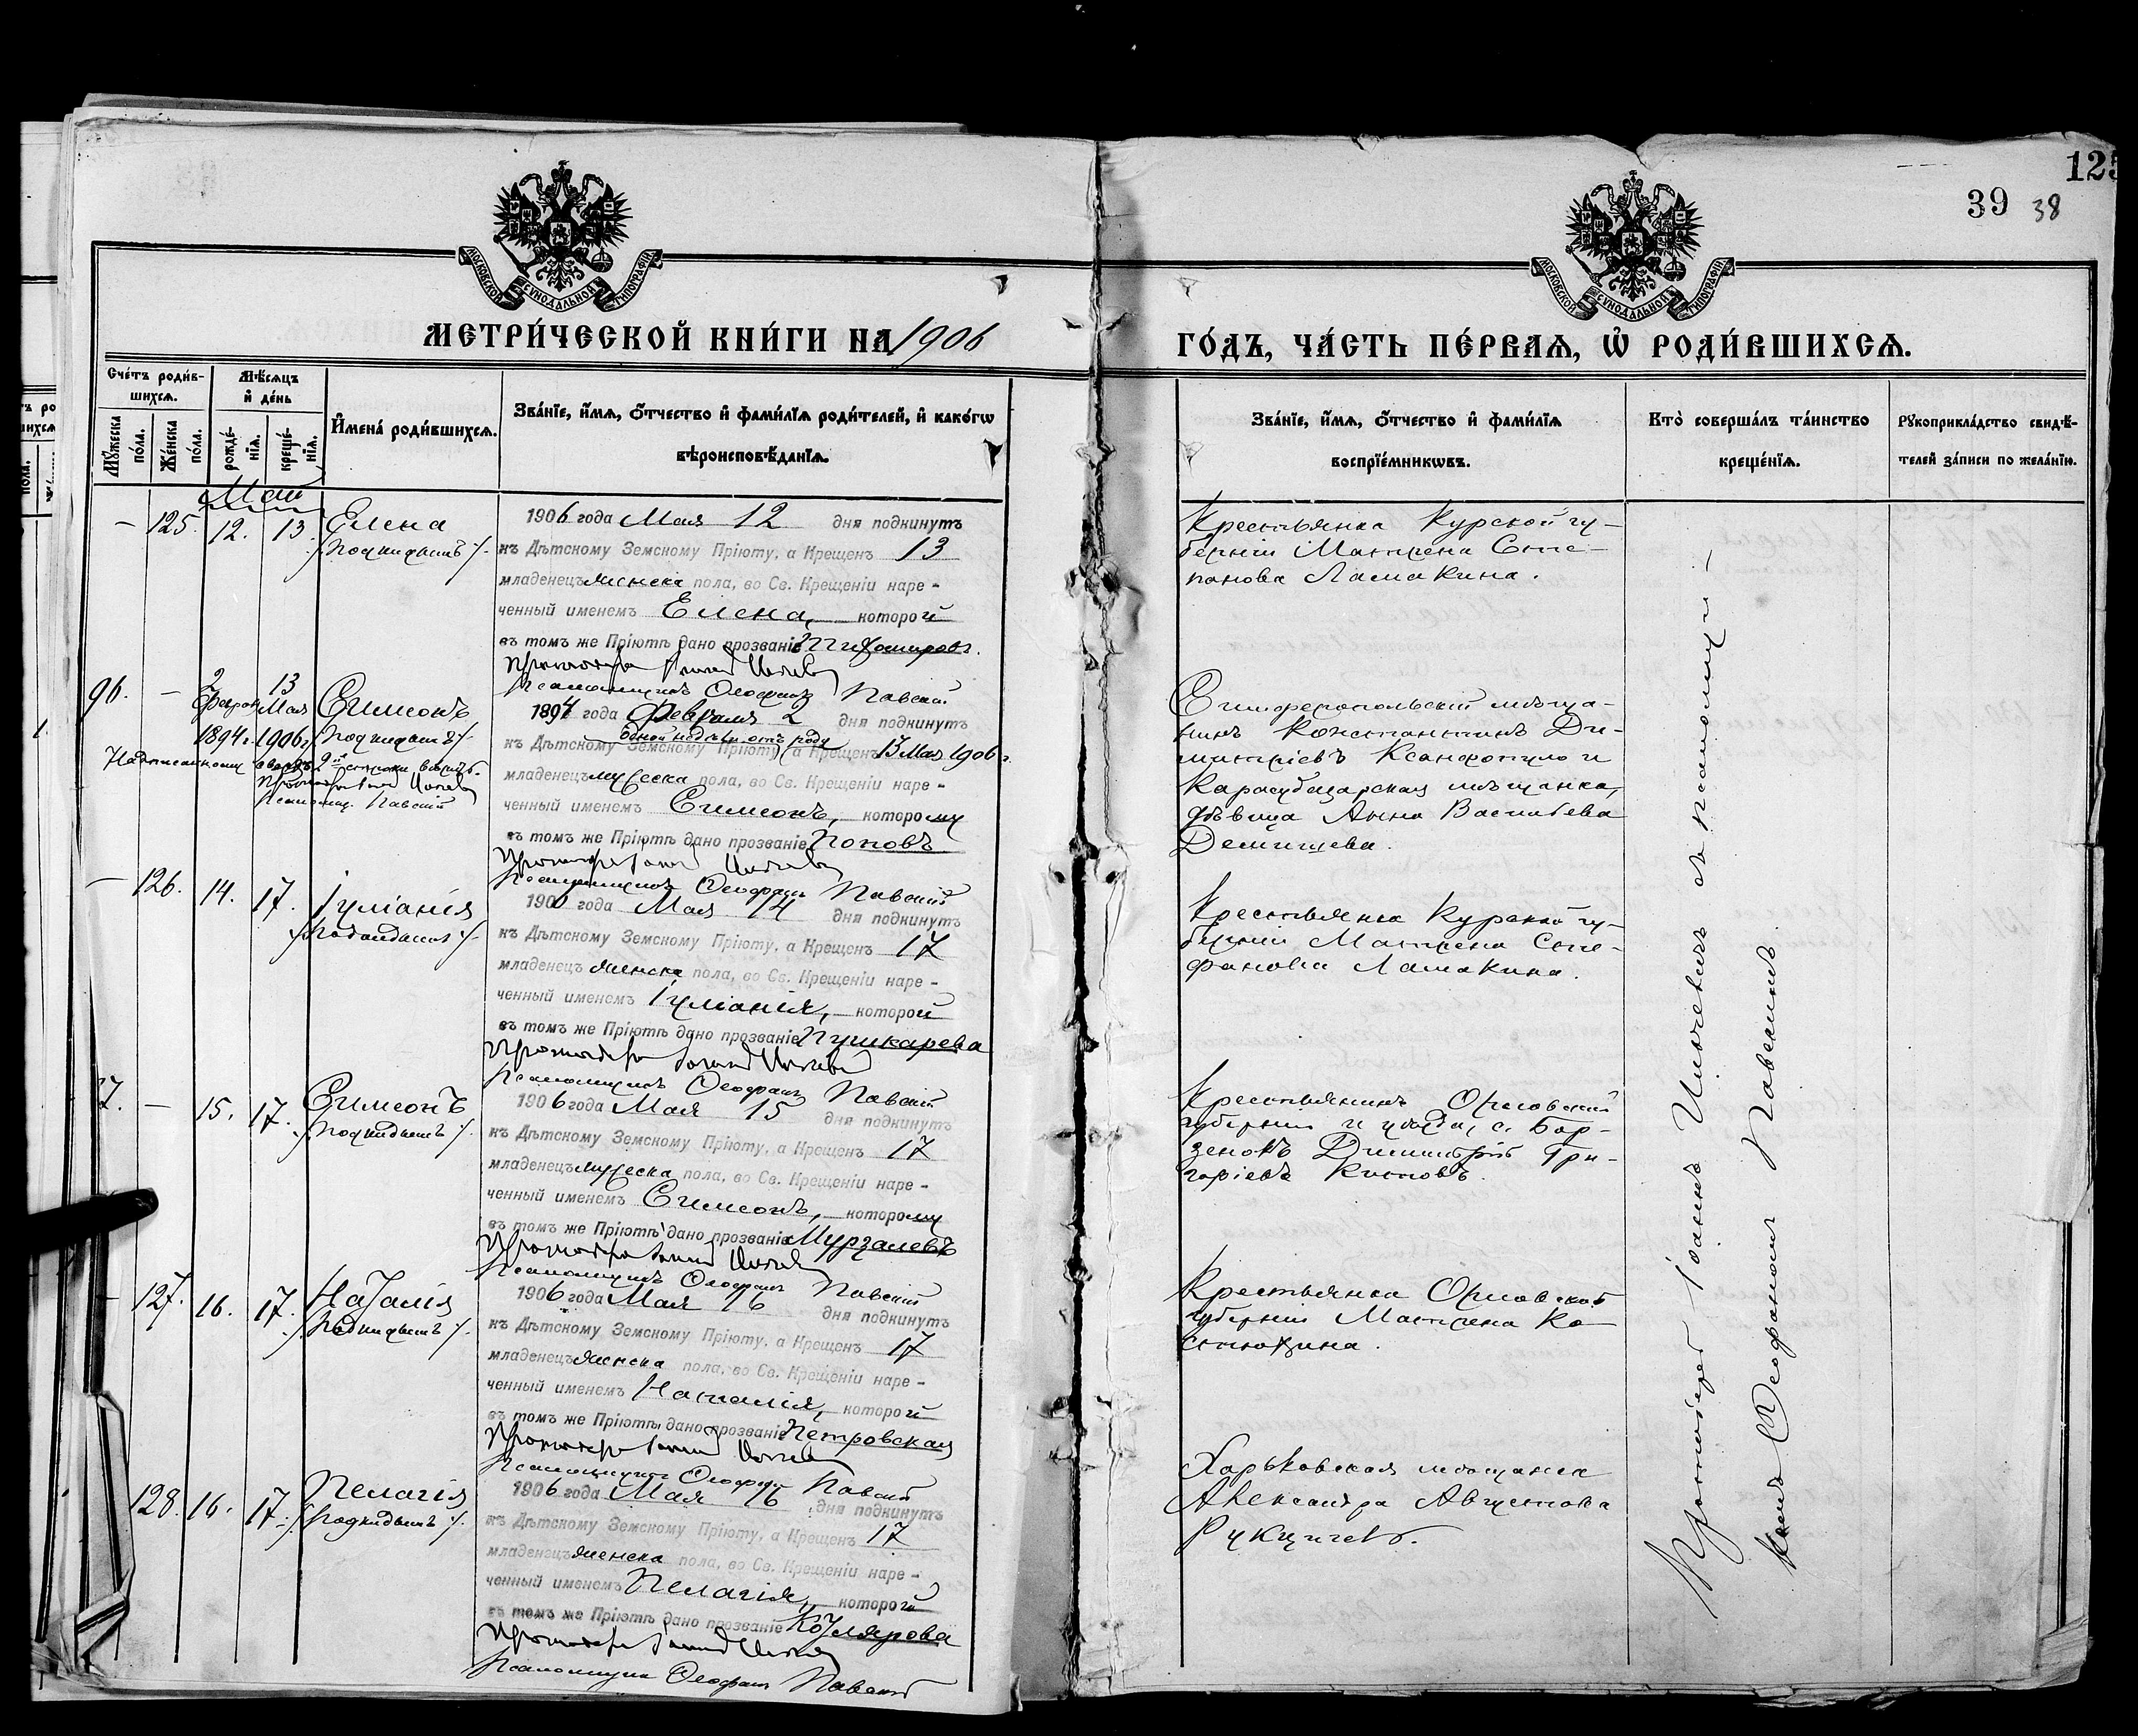 125
39 38
МОСКОВСКОЙ СѴНОДАЛЬНОЙ ТИПОГРАФІИ
МОСКОВСКОЙ СѴНОДАЛЬНОЙ ТИПОГРАФІИ
МЕТРИ́ЧЕСКОЙ КНИ́ГИ НА 1906
ГО́ДЪ, ЧА́СТЬ ПЕ́РВАѦ, Ѡ҆ РОДИ́ВШИХСѦ.
Сче́тъ роди́в-
шихсѧ.
Мꙋ́жеска по́ла.
Же́нска по́ла.
Мѣ́сѧцъ
и҆ де́нь
рожде́-
нїѧ.
креще́-
нїѧ.
И҆мена̀ роди́вшихсѧ.
Зва́нїе, и҆́мѧ, ѻ҆́тчество и҆ фами́лїѧ роди́телей, и҆ како́гѡ
вѣроисповѣ́данїѧ.
Зва́нїе, и҆́мѧ, ѻ҆́тчество и҆ фами́лїѧ
воспрїе́мникѡвъ.
Кто̀ соверша́лъ та́инство
креще́нїѧ.
Рꙋкоприкла́дство свидѣ́-
телей за́писи по жела́нїю.
Май
— 125. 12. 13. Елена
/Подкидышъ/.
1906 года Мая 12 дня подкинутъ
къ Дѣтскому Земскому Пріюту, а Крещенъ 13
младенецъ женска пола, во Св. Крещеніи наре-
ченный именемъ Елена, которой
въ томъ же Пріютѣ дано прозваніе
Протоіерей Іоаннъ
Псаломщикъ Ѳеофанъ Павскій
Крестьянка Курской гу-
берніи Матрена Сте-
панова Ламакина.
96. — 2 13
Февр. Мая Симеонъ
1894 г. 1906 г. /Подкидышъ/.
Надписанному сверхъ 2й строки вѣрить.
Протоіерей Іоаннъ
Псаломщ. Павскій
1894 года Февраля 2 дня подкинутъ
одной недѣли отъ роду
къ Дѣтскому Земскому Пріюту, а Крещенъ 13 Мая 1906 г.
младенецъ мужеска пола, во Св. Крещеніи наре-
ченный именемъ Симеонъ, которому
въ томъ же Пріютѣ дано прозваніе Поповъ
Протоіерей Іоаннъ
Псаломщикъ Ѳеофанъ Павскій
Симферопольскій мѣща-
нинъ Константинъ Ди-
митріевъ Ксанфопуло и
Карасубазарская мѣщанка,
дѣвица Анна Васильева
— 126. 14. 17. Іуліанія
/Подкидышъ/.
1906 года Мая 14 дня подкинутъ
къ Дѣтскому Земскому Пріюту, а Крещенъ 17
младенецъ женска пола, во Св. Крещеніи наре-
ченный именемъ Іуліанія, которой
въ томъ же Пріютѣ дано прозваніе Пушкарева
Протоіерей Іоаннъ
Псаломщикъ Ѳеофанъ Павскій
Крестьянка Курской гу-
берніи Матрена Сте-
фанова Ламакина.
7. — 15. 17. Симеонъ
/Подкидышъ/.
1906 года Мая 15 дня подкинутъ
къ Дѣтскому Земскому Пріюту, а Крещенъ 17
младенецъ мужеска пола, во Св. Крещеніи наре-
ченный именемъ Симеонъ, которому
въ томъ же Пріютѣ дано прозваніе Мурзалевъ
Протоіерей Іоаннъ
Псаломщикъ Ѳеофанъ Павскій
Крестьянинъ Орловской
губерніи и уѣзда, с. Бор-
зенокъ Димитрій Гри-
горіевъ
— 127. 16. 17. Наталія
/Подкидышъ/.
1906 года Мая 16 дня подкинутъ
къ Дѣтскому Земскому Пріюту, а Крещенъ 17
младенецъ женска пола, во Св. Крещеніи наре-
ченный именемъ Наталія, которой
въ томъ же Пріютѣ дано прозваніе Петровская
Протоіерей Іоаннъ
Псаломщикъ Ѳеофанъ Павскій
Крестьянка Орловской
губерніи Матрена Ко-
стюхина.
128. 16. 17. Пелагія
/Подкидышъ/.
1906 года Мая 16 дня подкинутъ
къ Дѣтскому Земскому Пріюту, а Крещенъ 17
младенецъ женска пола, во Св. Крещеніи наре-
ченный именемъ Пелагія, которой
въ томъ же Пріютѣ дано прозваніе Котлярова
Протоіерей Іоаннъ
Псаломщикъ Ѳеофанъ Павскій
Харьковская мѣщанка
Александра Августова
Протоіерей Іоаннъ съ псаломщи-
комъ Ѳеофаномъ Павскимъ.